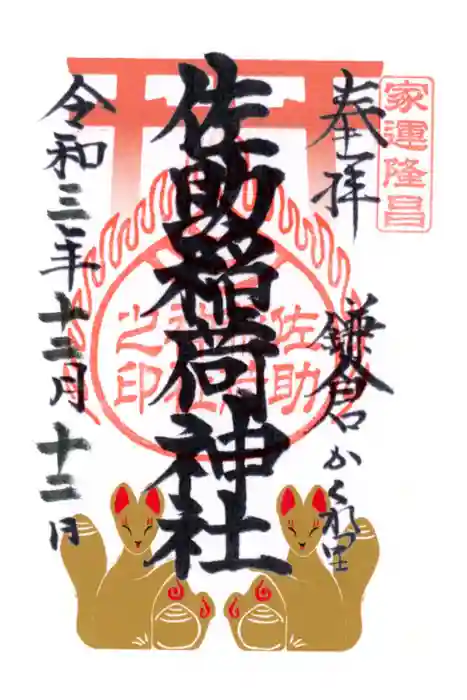 家運隆昌
奉拝
鎌倉かくれ里
佐助稲荷神社
佐助稲荷神社之印
令和三年十二月十二日